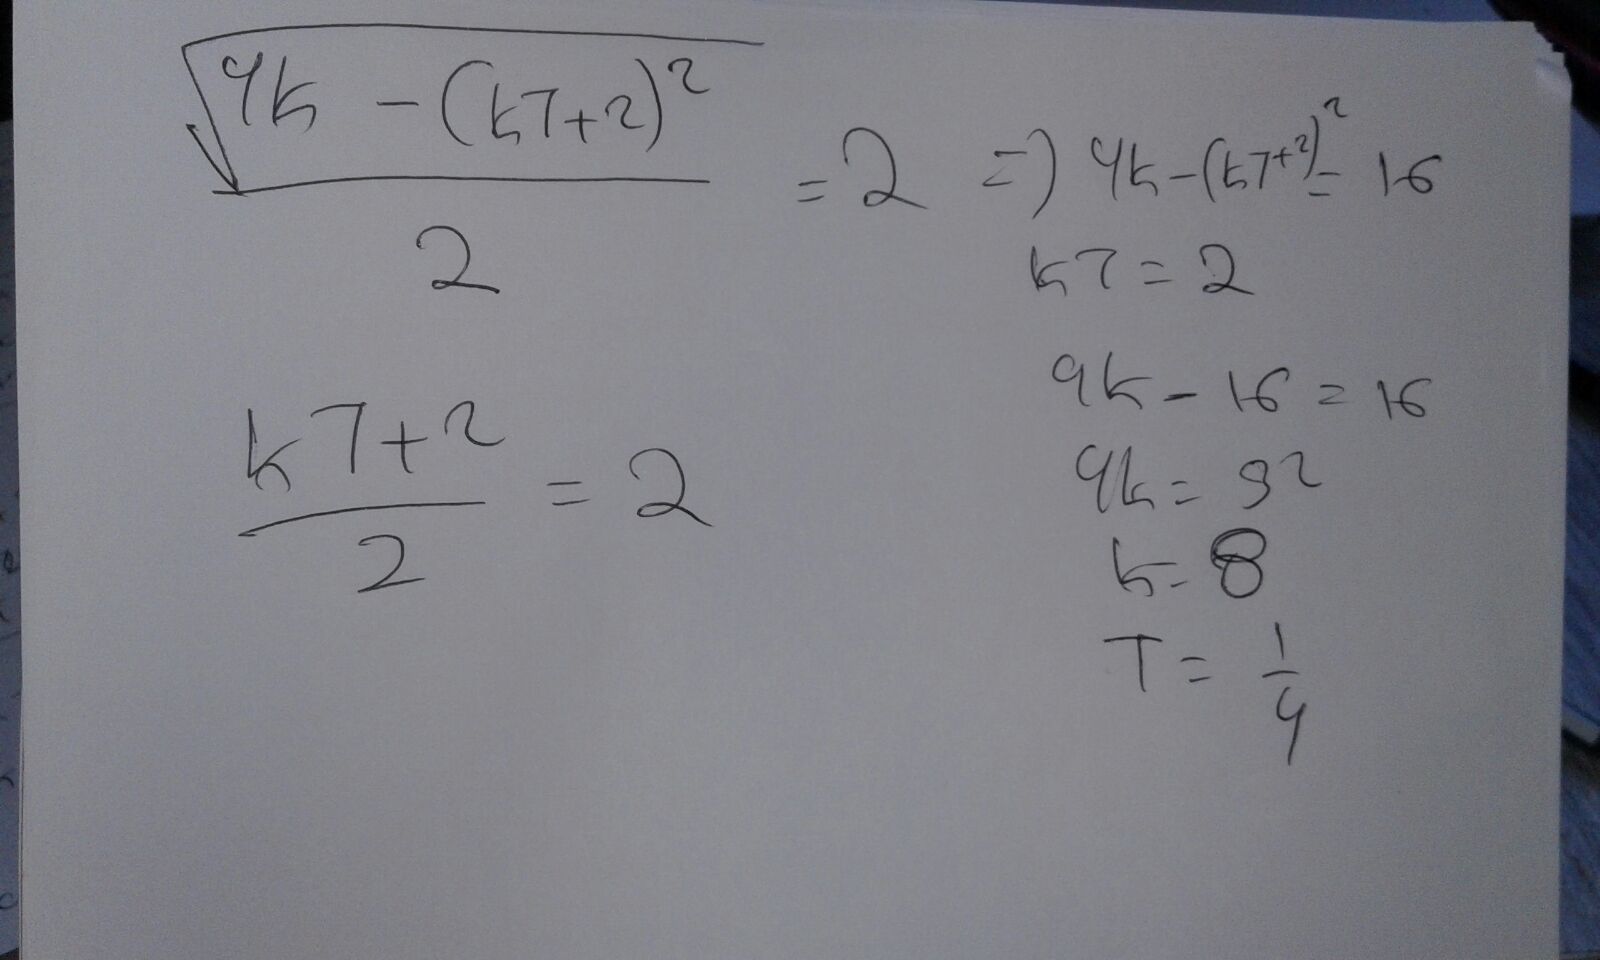 √(4k - (kT+2)²) / 2 = 2 => 4k - (kT+2)² = 16
kT = 2
(kT+2) / 2 = 2
4k - 16 = 16
4k = 32
k = 8
T = 1/4